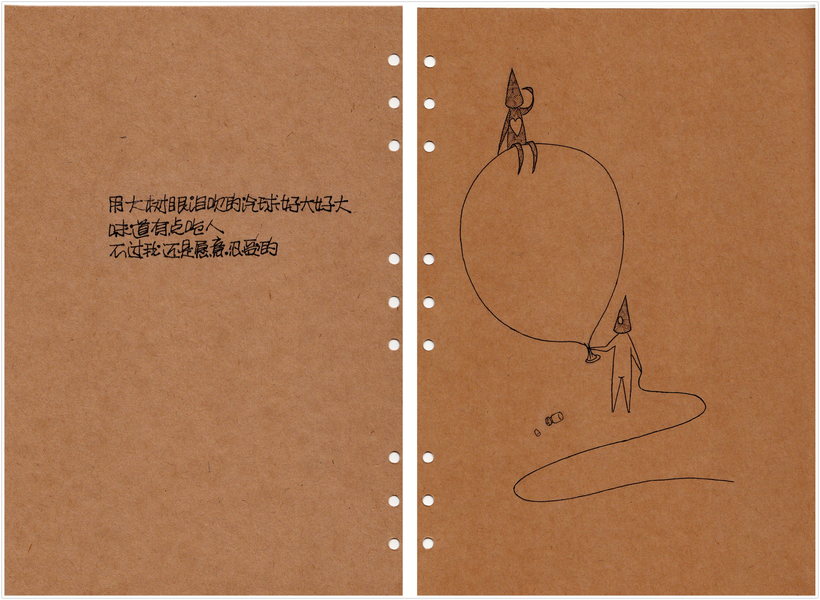 用大树眼泪吹的汽球好大好大
味道有点呛人
不过我还是愿意的